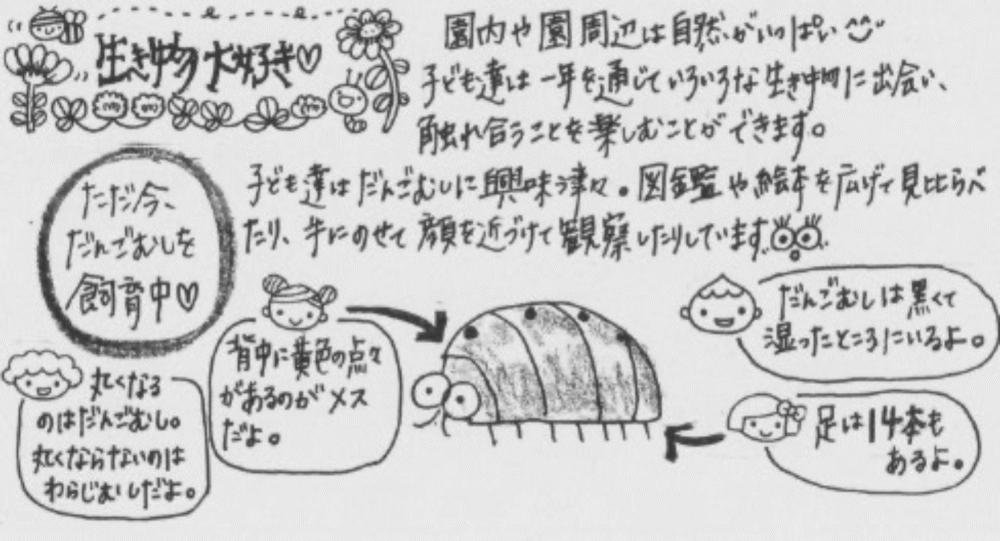 生き物大好き♡
園内や園周辺は自然がいっぱい
子ども達は一年を通じていろいろな生き物に出会い、
触れ合うことを楽しむことができます。
子ども達はだんごむしに興味津々。図鑑や絵本を広げて見比らべ
たり、手にのせて顔を近づけて観察したりしています
ただ今、
だんごむしを
飼育中♡
丸くなる
のはだんごむし。
丸くならないのは
わらじむしだよ。
背中に黄色の点々
があるのがメス
だよ。
だんごむしは黒くて
湿ったところにいるよ。
足は14本も
あるよ。